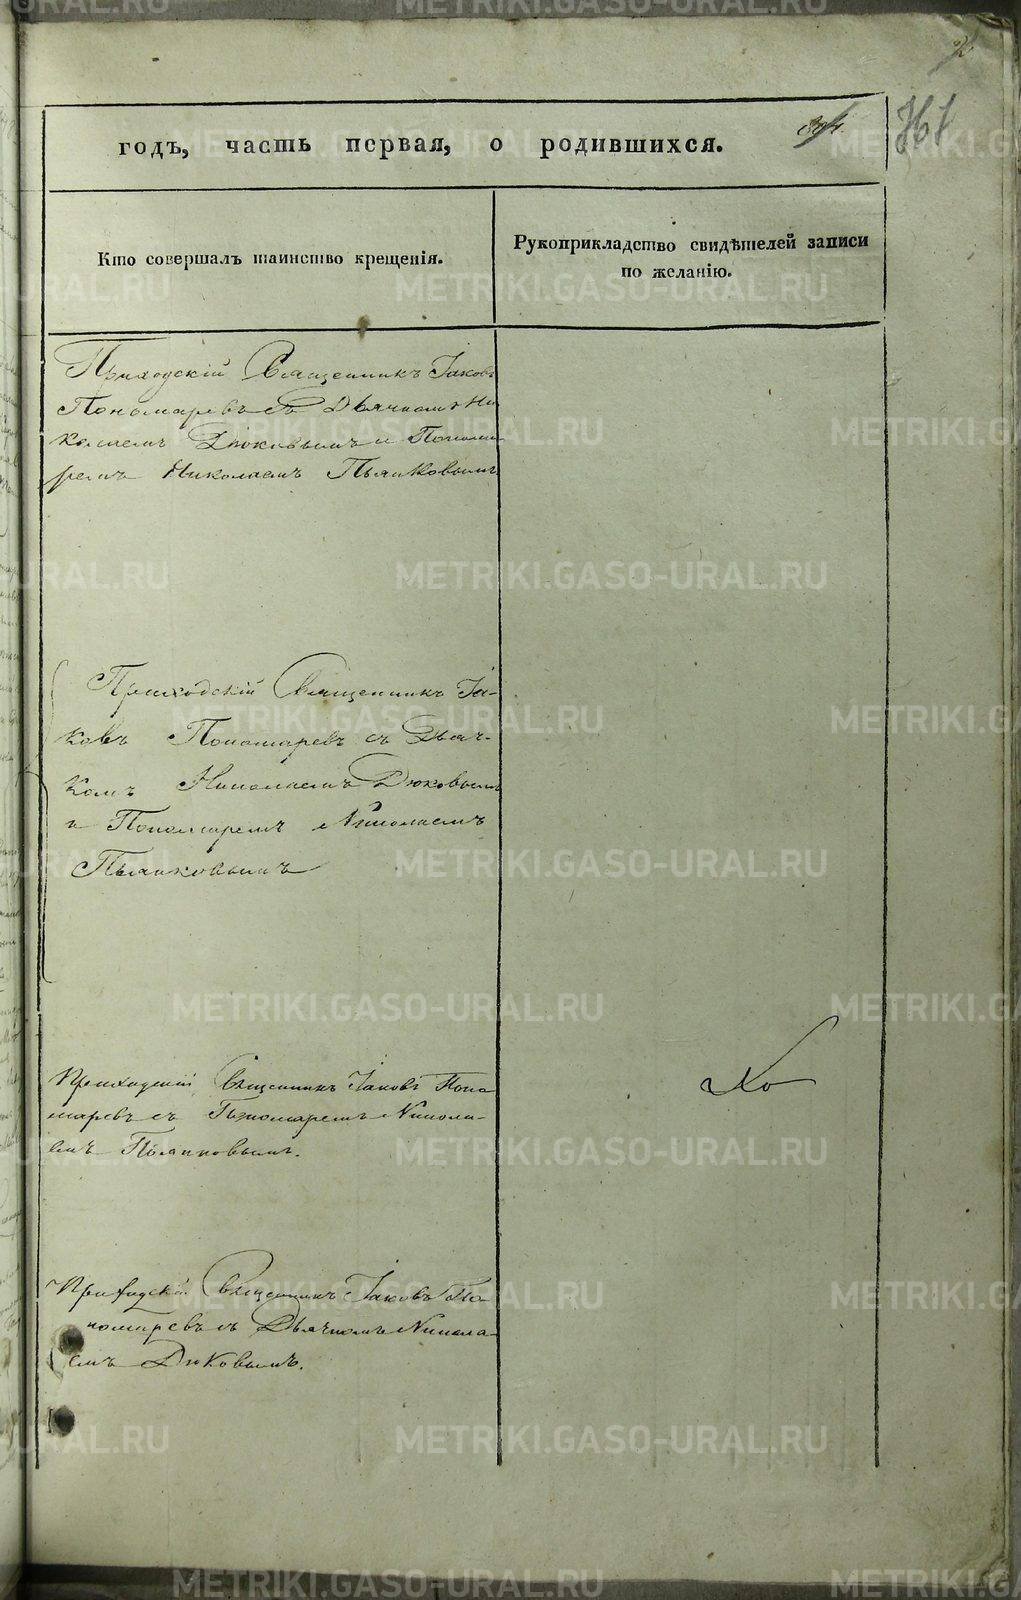 761
годъ, часть первая, о родившихся.
Кто совершалъ таинство крещенія.
Рукоприкладство свидѣтелей записи
по желанію.
Приходскій Священникъ Іаковъ
Пономаревъ съ Дьячкомъ Ни
колаемъ Дюковымъ и Понома
ремъ Николаемъ Пьянковымъ
Приходскій Священникъ Іа-
ковъ Пономаревъ съ Дьяч-
комъ Николаемъ Дюковымъ
и Пономаремъ Николаемъ
Пьянковымъ
Приходскій Священникъ Іаковъ Поно
маревъ съ Пономаремъ Никола-
емъ Пьянковымъ.
Приходскій Священникъ Іаковъ По
номаревъ съ Дьячкомъ Никола-
емъ Дюковымъ.
METRIKI.GASO-URAL.RU